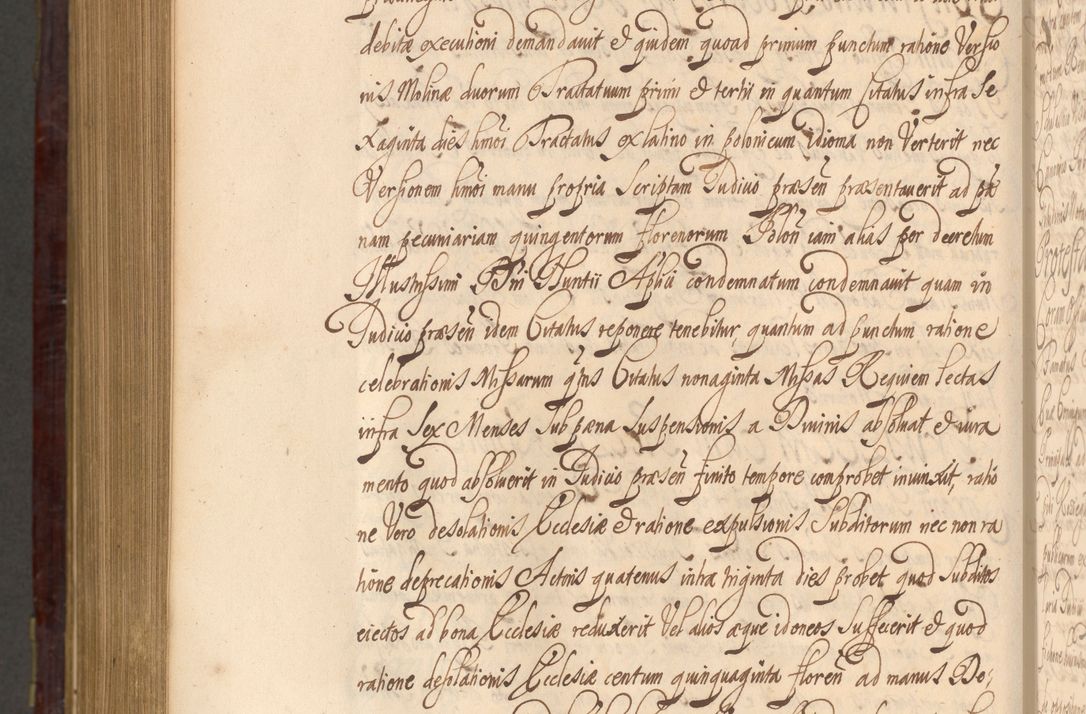 debitæ executioni demandavit et quidem quoad primum punctum ratione Versio
nis Molinæ duorum Tractatuum primi et tertii in quantum Citatus infra Se
xaginta dies hmoi Tractatus ex latino in polonicum idioma non Verterit nec
Versionem hmoi manu propria Scriptam Judicio præsen præsentaverit ad pæ
nam pecuniariam quingentorum florenorum Polon iam alias per decretum
Illustrissimi Dni Nuntii Aplici condemnatum condemnavit quam in
Judicio præsen idem Citatus reponere tenebitur, quantum ad punctum ratione
celebrationis Missarum Citatus nonaginta Missas Requiem lectas
infra Sex Menses Sub pæna Suspensionis a Divinis absolvat et iura
mento quod absolverit in Judicio præsen finito tempore comprobet iniunxit, ratio
ne Vero desolationis Ecclesiæ et ratione expulsionis Subditorum nec non ra
tione deprecationis Actoris quatenus intra triginta dies probet quod Subditos
eiectos ad bona Ecclesiæ reduxerit Vel alios æque idoneos Suffecerit et quod
ratione desolationis Ecclesiæ centum quinquaginta floren ad manus De,